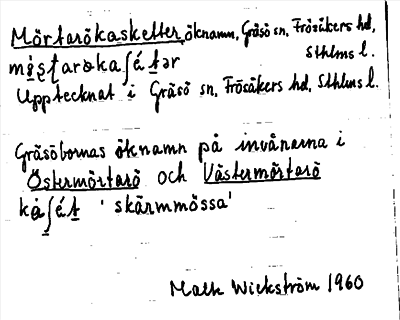 Mörtarökasketter, öknamn, Gräsö sn, Frösåkers hd,
Sthlms l.
Upptecknat i Gräsö sn, Frösåkers hd, Sthlms l.
Gräsöbornas öknamn på invånarna i
Östermörtarö och Västermörtarö
'skärmmössa'
Malte Wickström 1960